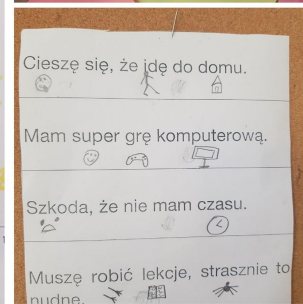 Cieszę się, że idę do domu.
Mam super grę komputerową.
Szkoda, że nie mam czasu.
Muszę robić lekcje, strasznie to
nudne.